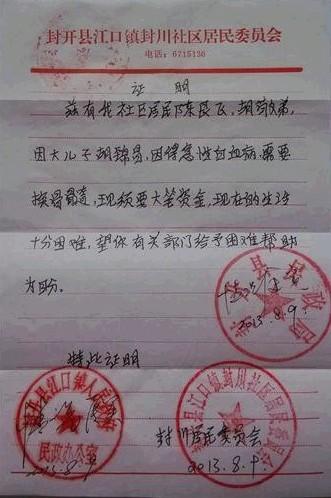 封开县江口镇封川社区居民委员会
电话：6715136
证 明
兹有我社区居民陈辰飞，胡
因大儿子胡锦易，因得急性白血病，需要
换骨髓，现须要大笔资金，现在的生活
十分困难，望你有关部门给予困难帮助
为盼。
2013.8.9.
特此证明
封开县江口镇人民政府
民政办公室
2013.8.9
封开县江口镇封川社区居民委员会
封川居民委员会
2013.8.9